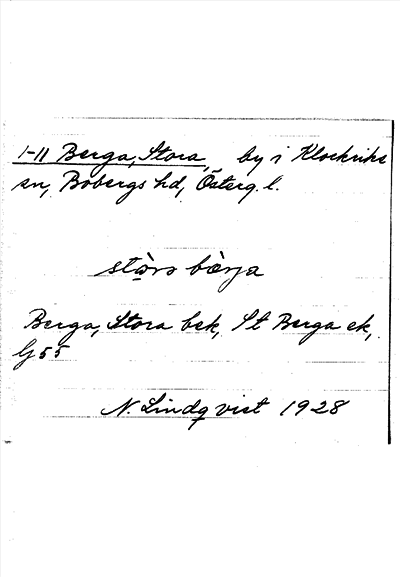 1-11 Berga, Stora, by i Klockrike
sn, Bobergs hd, Österg. l.
stòrs bærja
Berga, Stora bek, St Berga ek,
G 55
N. Lindqvist 1928